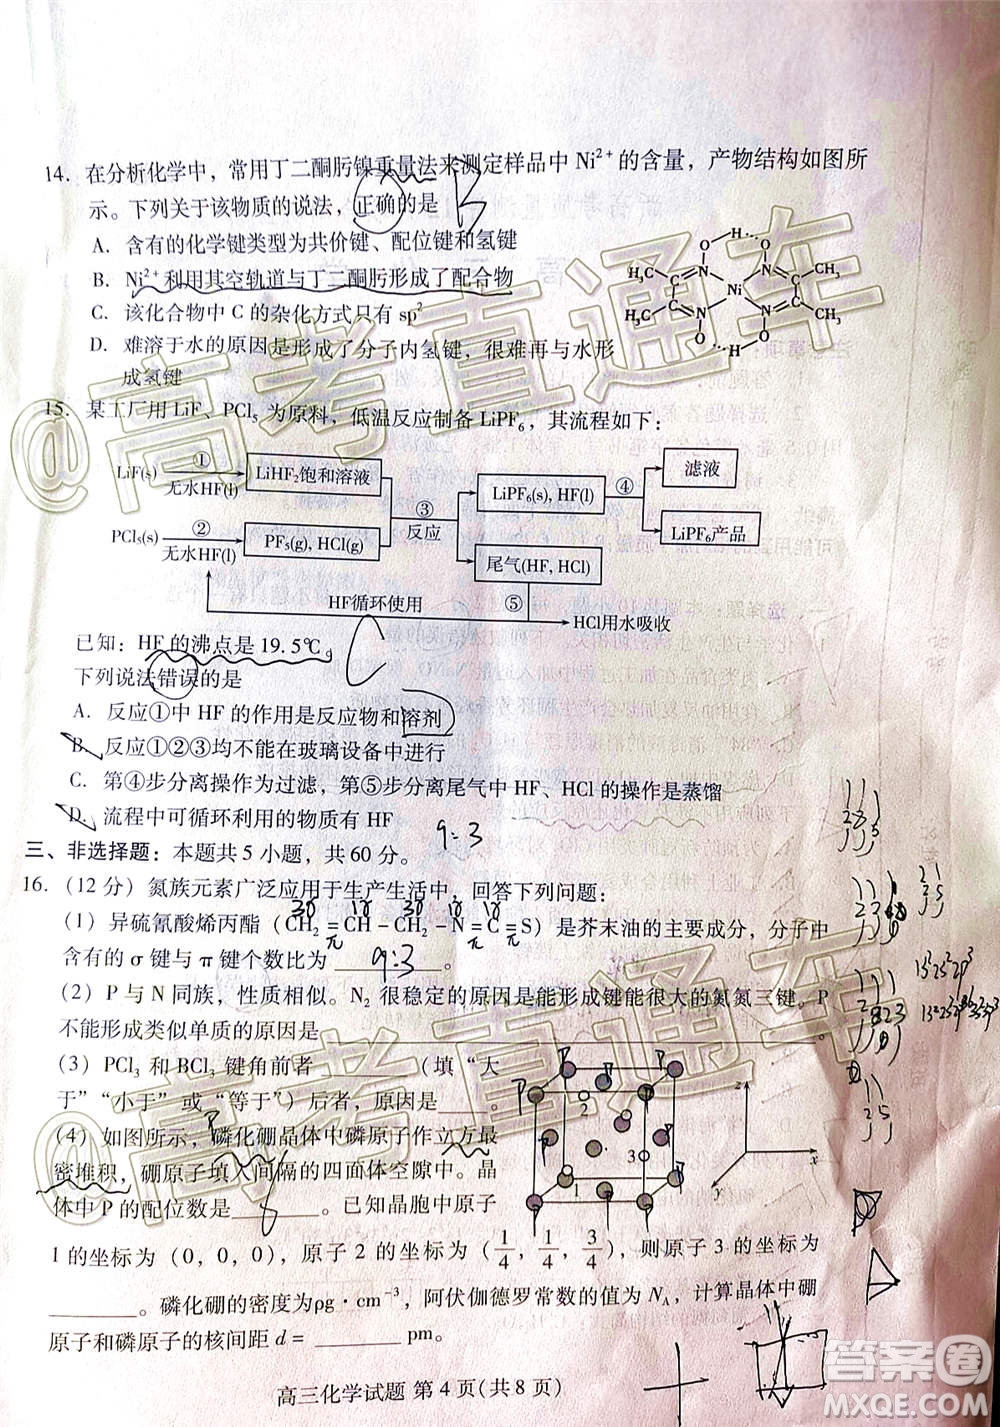 14. 在分析化学中，常用丁二酮肟镍重量法来测定样品中 Ni²⁺ 的含量，产物结构如图所
示。下列关于该物质的说法，正确的是 B
A. 含有的化学键类型为共价键、配位键和氢键
B. Ni²⁺ 利用其空轨道与丁二酮肟形成了配合物
C. 该化合物中 C 的杂化方式只有 sp²
D. 难溶于水的原因是形成了分子内氢键，很难再与水形
成氢键
O H O
H₃C N N CH₃
Ni
H₃C N N CH₃
O H O
15. 某工厂用 LiF、PCl₅ 为原料，低温反应制备 LiPF₆，其流程如下：
LiF(s) ① 无水HF(l) LiHF₂饱和溶液
PCl₅(s) ② 无水HF(l) PF₅(g), HCl(g)
③ 反应
LiPF₆(s), HF(l) ④ 滤液
LiPF₆产品
尾气(HF, HCl)
⑤
HF循环使用
HCl用水吸收
已知：HF 的沸点是 19.5℃。
C
下列说法错误的是
A. 反应①中 HF 的作用是反应物和溶剂
B. 反应①②③均不能在玻璃设备中进行
C. 第④步分离操作为过滤，第⑤步分离尾气中 HF、HCl 的操作是蒸馏
D. 流程中可循环利用的物质有 HF
9:3
三、非选择题：本题共 5 小题，共 60 分。
16.（12 分）氮族元素广泛应用于生产生活中，回答下列问题：
（1）异硫氰酸烯丙酯（CH₂=CH－CH₂－N=C=S）是芥末油的主要成分，分子中
含有的 σ 键与 π 键个数比为 9:3 。
（2）P 与 N 同族，性质相似。N₂ 很稳定的原因是能形成键能很大的氮氮三键。P
不能形成类似单质的原因是______。
（3）PCl₃ 和 BCl₃ 键角前者______（填“大
于”“小于”或“等于”）后者，原因是______。
（4）如图所示，磷化硼晶体中磷原子作立方最
密堆积，硼原子填入间隔的四面体空隙中。晶
体中 P 的配位数是 8 。已知晶胞中原子
1 的坐标为（0，0，0），原子 2 的坐标为（1/4，1/4，3/4），则原子 3 的坐标为
______。磷化硼的密度为ρg·cm⁻³，阿伏伽德罗常数的值为 N_A，计算晶体中硼
原子和磷原子的核间距 d = ______ pm。
1
2
3
z
x
y
高三化学试题 第 4 页(共 8 页)
@高考直通车
@高考直通车
答案圈
MXQE.COM